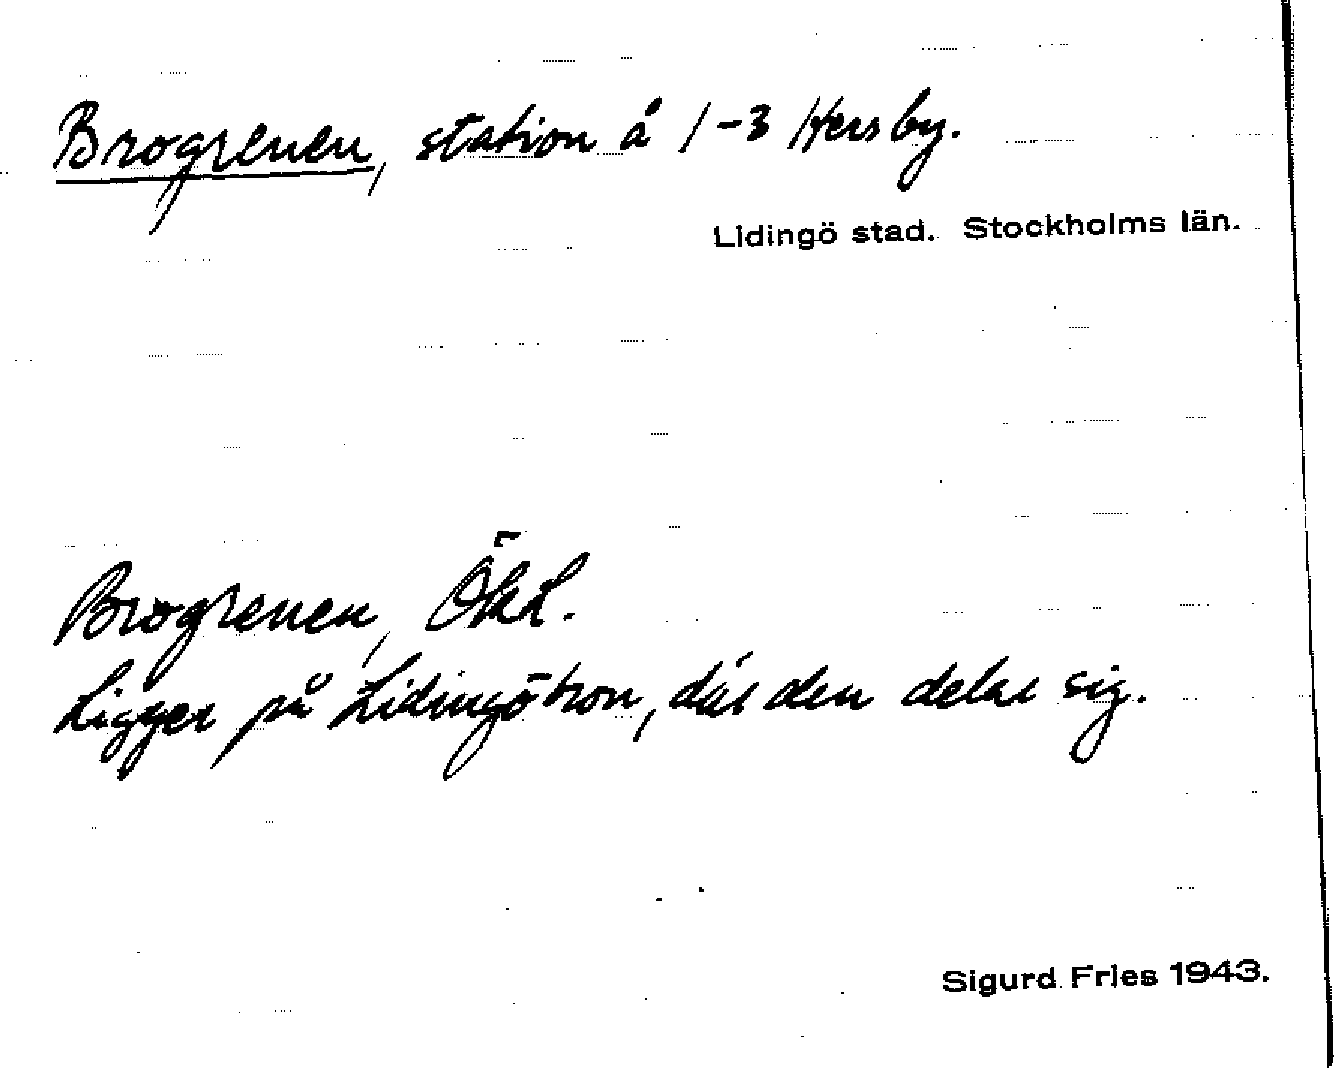 Brogrenen, station å 1-3 Hersby.
Lidingö stad. Stockholms län.
Brogrenen, Öhl.
Ligger på Lidingöbron, där den delar sig.
Sigurd Fries 1943.